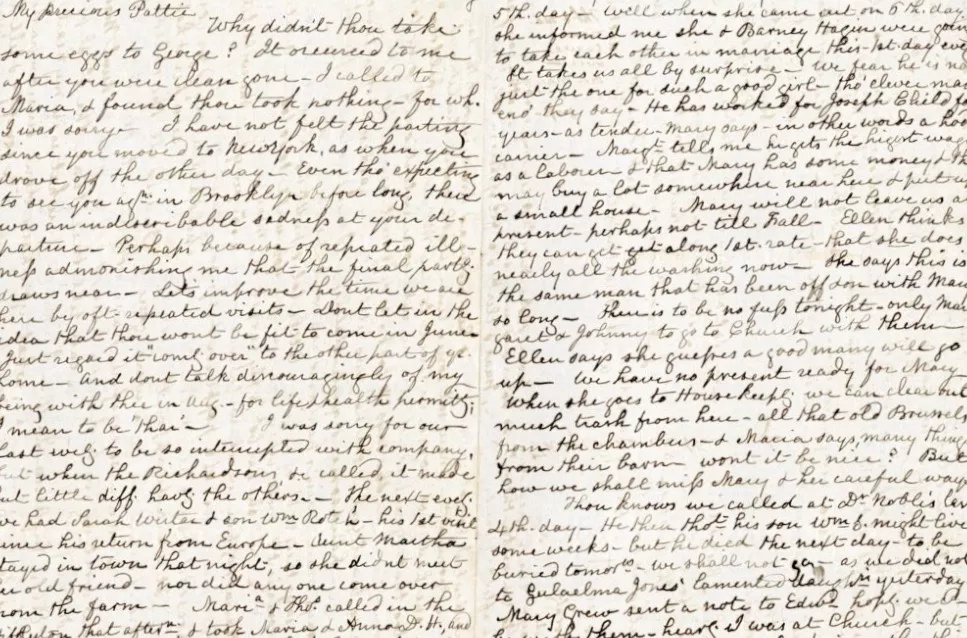 My precious Pattie
Why didn't thou take
some eggs to George? It occurred to me
after you were clean gone - I called to
Maria, & found thou took nothing - for wh.
I was sorry. I have not felt the parting
since you moved to New York, as when you
drove off the other day - Even tho' expecting
to see you agn. in Brooklyn before long, there
was an indescribable sadness at your de-
parture - Perhaps because of repeated ill-
ness admonishing me that the final partg.
draws near - Lets improve the time we are
here by oft-repeated visits - Dont let in the
idea that thou wont be fit to come in June
Just regard it "comg. over" to the other part of yr.
home - And dont talk discouragingly of my
being with thee in Aug - for life & health permittg.
I mean to be 'thar' - I was sorry for our
last evg. to be so interrupted with company,
but when the Richardsons &c called it made
but little diff. havg. the others. - The next evg.
we had Sarah & son Wm. - his 1st visit
since his return from Europe - Aunt Martha
stayed in town that night, so she didnt meet
old friend - nor did any one come over
from the farm - Maria & Thos. called in the
that aftern. & took Maria & Anna D. H., and
5th. day - well when she came out on 6th. day
she informed me she & Barney Hagin were going
to take each other in marriage this 1st. day eve
It takes us all by surprise - we fear he is no
just the one for such a good girl - tho' clever man
eno' they say - He has worked for Joseph Child fo
years - as tender - Mary says - in other words a ho
carrier - Margt. tells me he gets the highst wag
as a labourer & that Mary has some money & th
may buy a lot somewhere near here & put up
a small house - Mary will not leave us a
present - perhaps not till Fall - Ellen thinks
they can get get along 1st. rate - that she does
nearly all the washing now - She says this is
the same man that has been off & on with Mary
so long - There is to be no fuss tonight - only Mar
garet & Johnny to go to Church with them -
Ellen says she guesses a good many will go
up - We have no present ready for Mary
When she goes to Housekeepg. we can clear out
much trash from here - all that old Brussels
from the chambers - & Maria says, many things
from their barn - wont it be nice? But
how we shall miss Mary & her careful ways
Thou knows we called at Dr. Noble's
4th. day - He then thot. his son Wm. might live
some weeks - but he died the next day - to be
buried tomorro - we shall not go - as we did not
to Gulaelma Jones' lamented yesterday
Mary Grew sent a note to Edwd. hopg. we
them - hearg. I was at Church - but